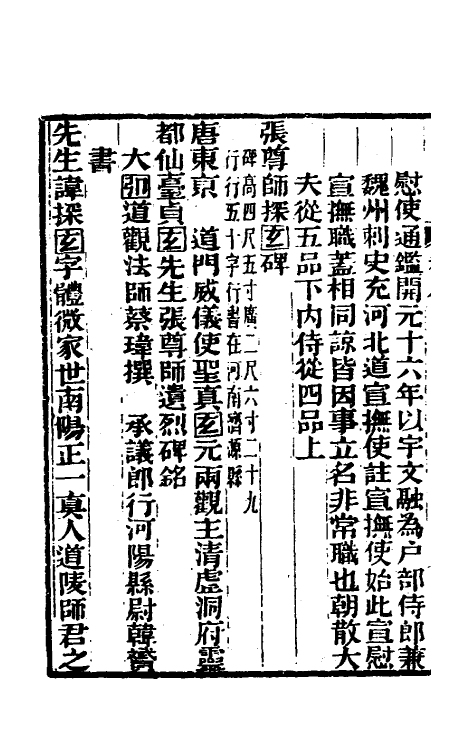 慰使通鑑開元十六年以宇文融為戶部侍郎兼
魏州刺史充河北道宣撫使註宣撫使始此宣慰
宣撫職蓋相同諒皆因事立名非常職也朝散大
夫從五品下內侍從四品上
張尊師探玄碑
碑高四尺五寸廣二尺六寸二十九
行行五十字行書在河南濟源縣
唐東京　道門威儀使聖真玄元兩觀主清虛洞府靈
都仙臺貞玄先生張尊師遺烈碑銘
大弘道觀法師蔡瑋撰　承議郎行河陽縣尉韓賞
書
先生諱探玄字體微家世南陽正一真人道陵師君之